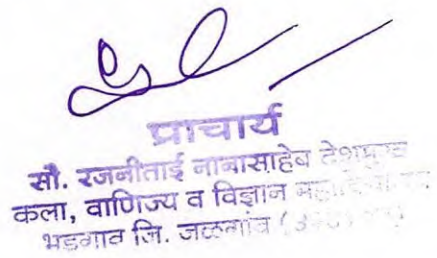 प्राचार्य
सौ. रजनीताई नानासाहेब देशमुख
कला, वाणिज्य व विज्ञान
भडगाव जि. जळगांव